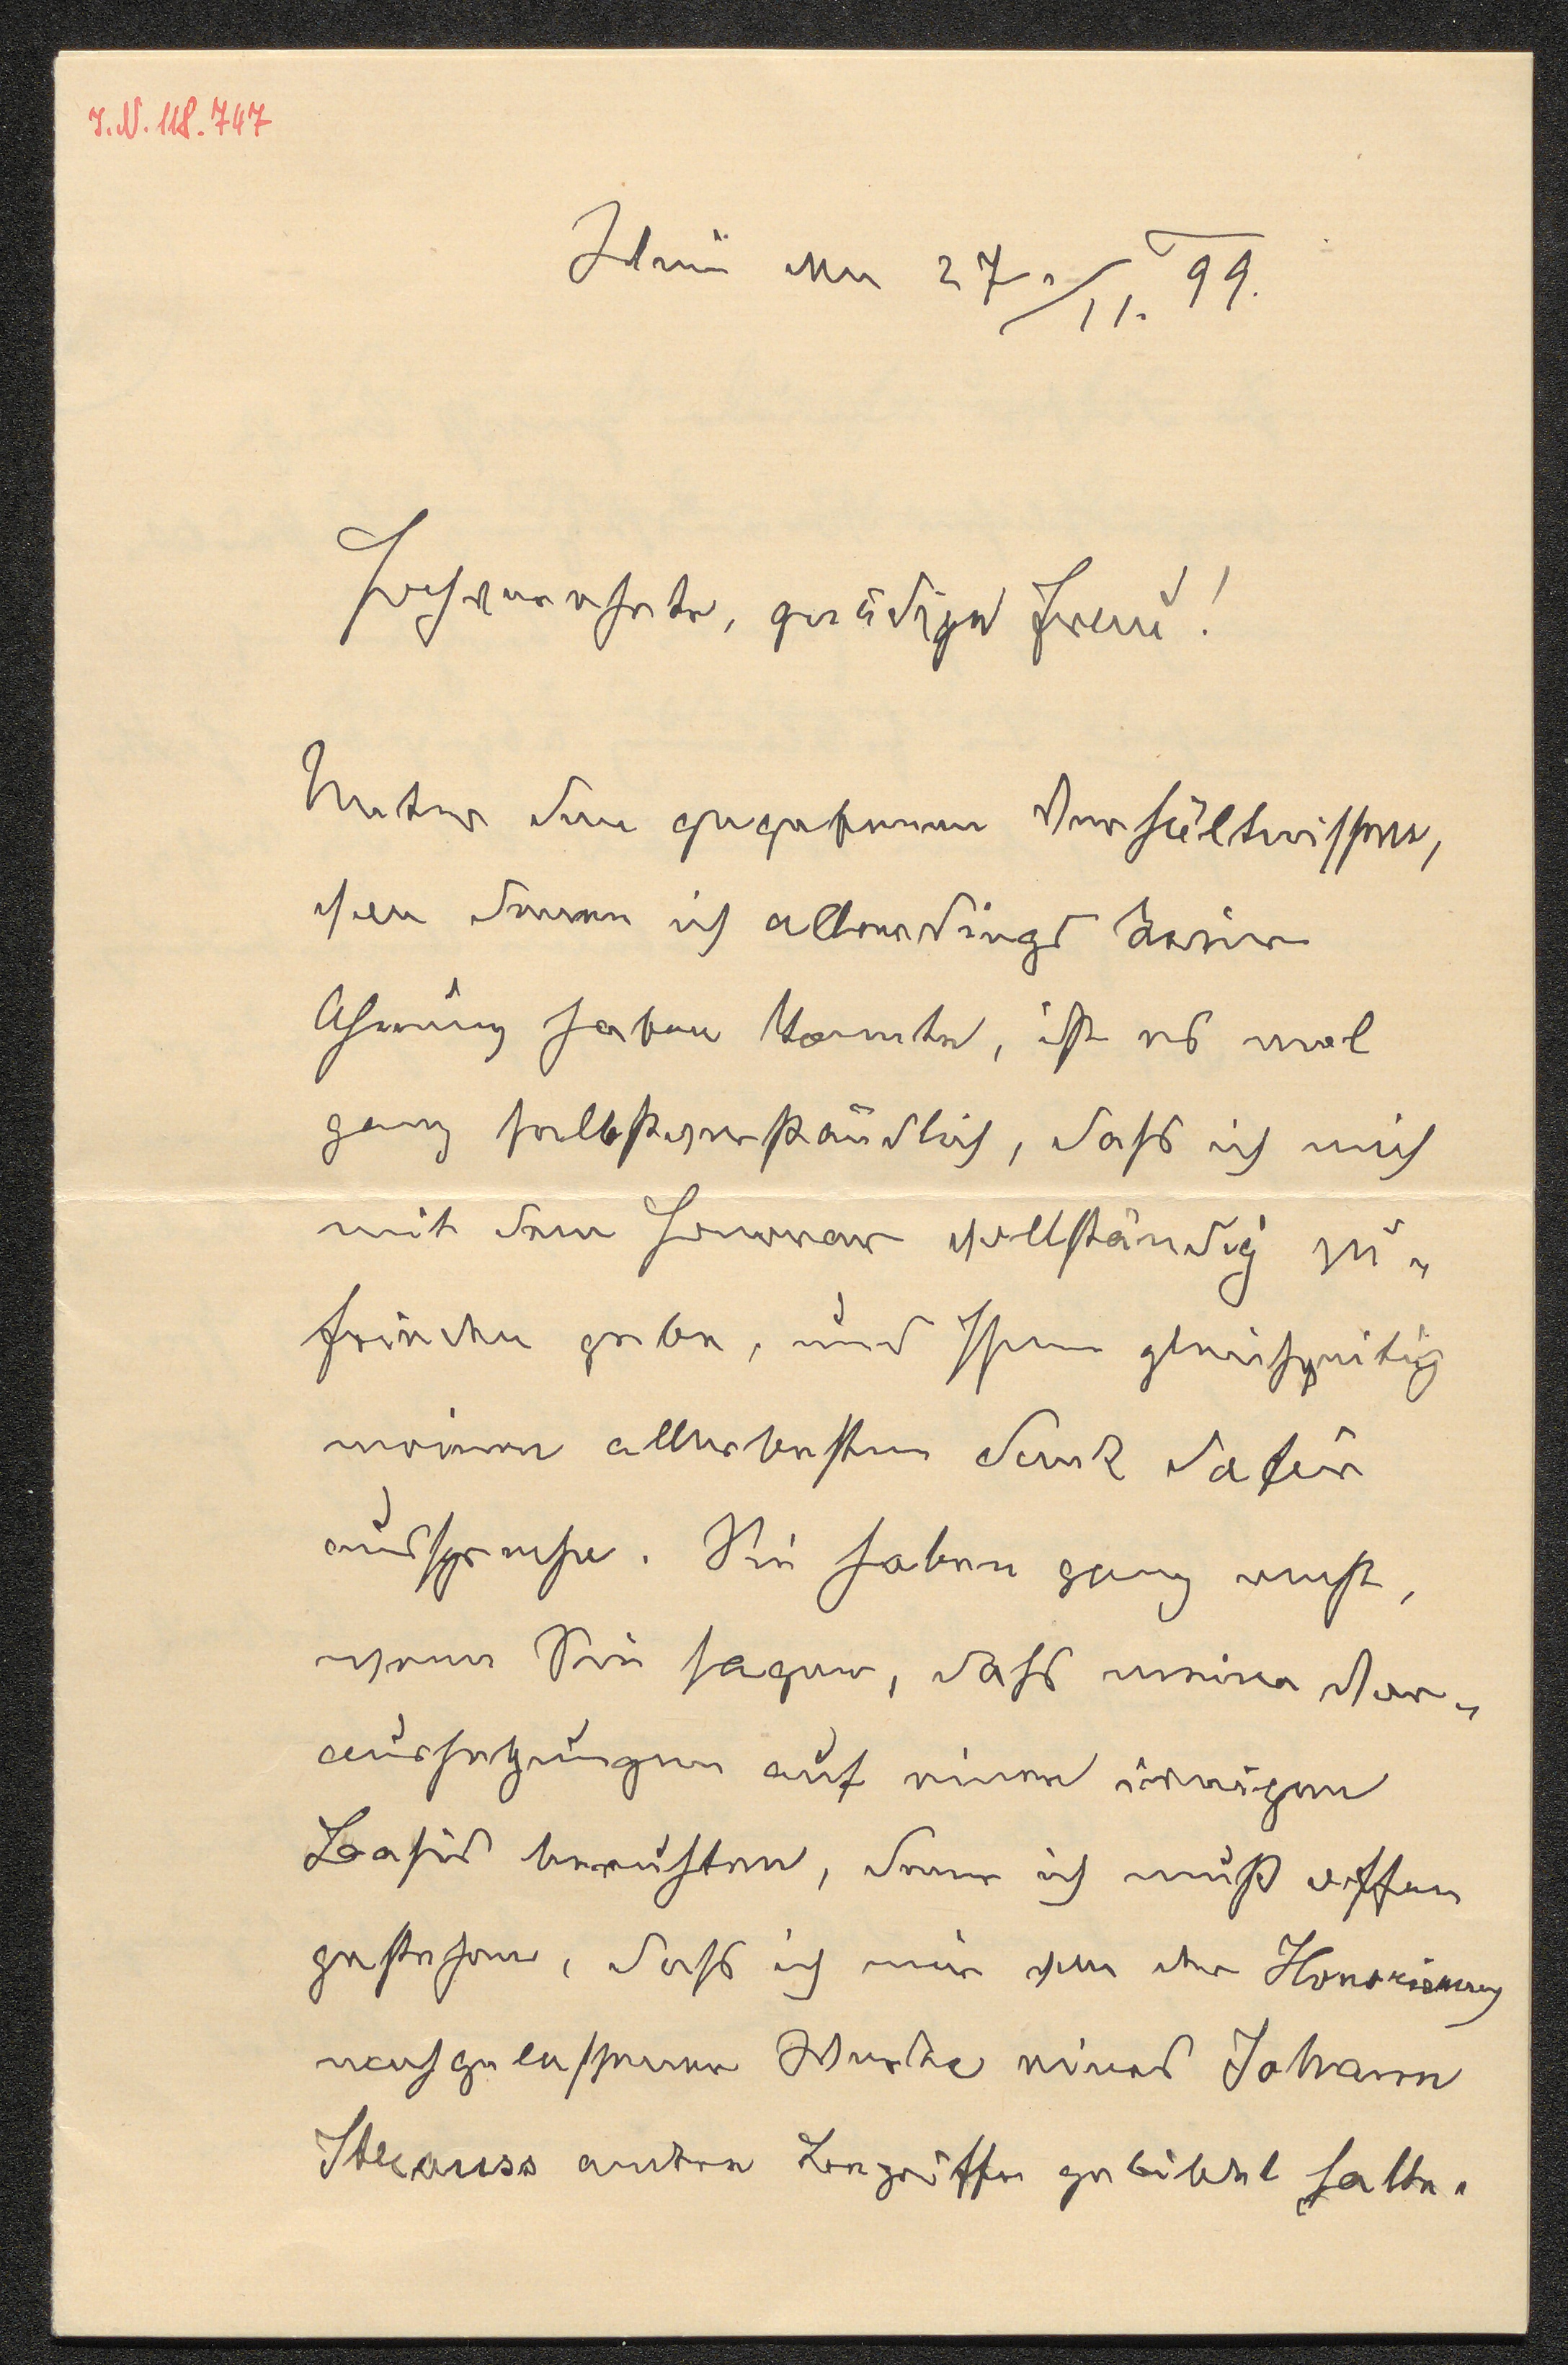 I.N. 118.747
den 27./11. 99.
Hochverehrte, gnädige Frau!
Unter den gegebenen Verhältnissen,
von denen ich allerdings keine
Ahnung haben konnte, ist es wol
ganz selbstverständlich, dass ich mich
mit dem Honorar vollständig zu-
frieden gebe, und Ihnen gleichzeitig
meinen allerbesten Dank dafür
ausspreche. Sie haben ganz recht,
wenn Sie sagen, dass meine Vor-
aussetzungen auf einer irrigen
Basis beruhten, denn ich muß offen
gestehen, dass ich mir von der Honorierung
nachgelassener Werke eines Johann
Strauss andere Begriffe gebildet hatte.